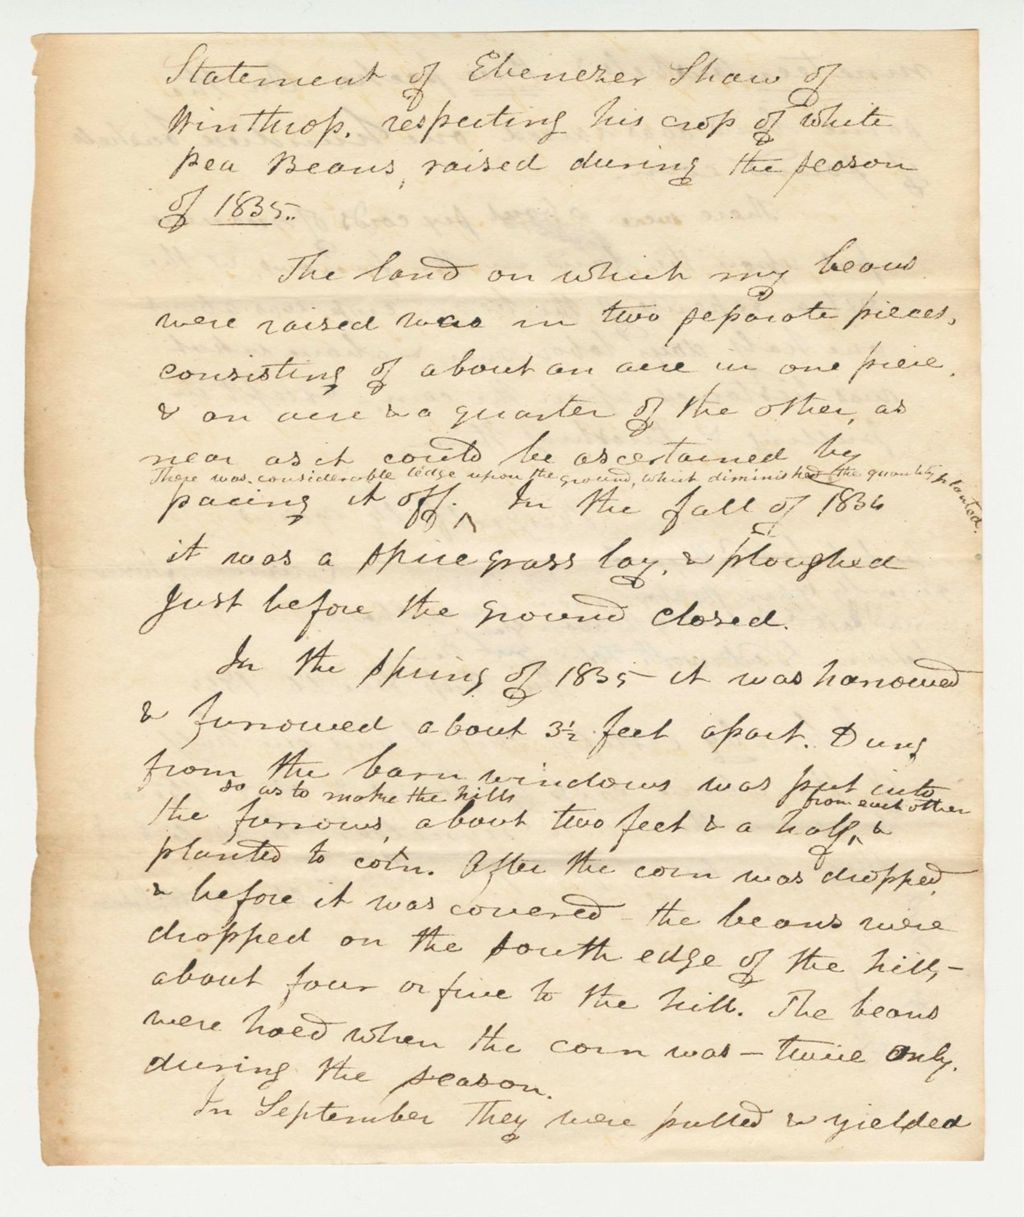 Statement of Ebenezer Shaw of
Winthrop, respecting his crop of white
Pea Beans, raised during the season
of 1835.
The land on which my beans
were raised was in two separate pieces,
consisting of about an acre in one piece,
& an acre & a quarter of the other, as
near as it could be ascertained by
There was considerable ledge upon the ground, which diminished the quantity planted.
pacing it off. ^ In the fall of 1834
it was a spire grass lay, & ploughed
Just before the ground closed.
In the spring of 1835 it was harrowed
& furrowed about 3½ feet apart. Dung
from the barn windows was put into
so as to make the hills from each other
the furrows, about two feet & a half, ^ &
planted to corn. After the corn was dropped,
& before it was covered - the beans were
dropped on the south edge of the hill, -
about four or five to the hill. The beans
were hoed when the corn was - twice only.
during the season.
In September They were pulled & yielded